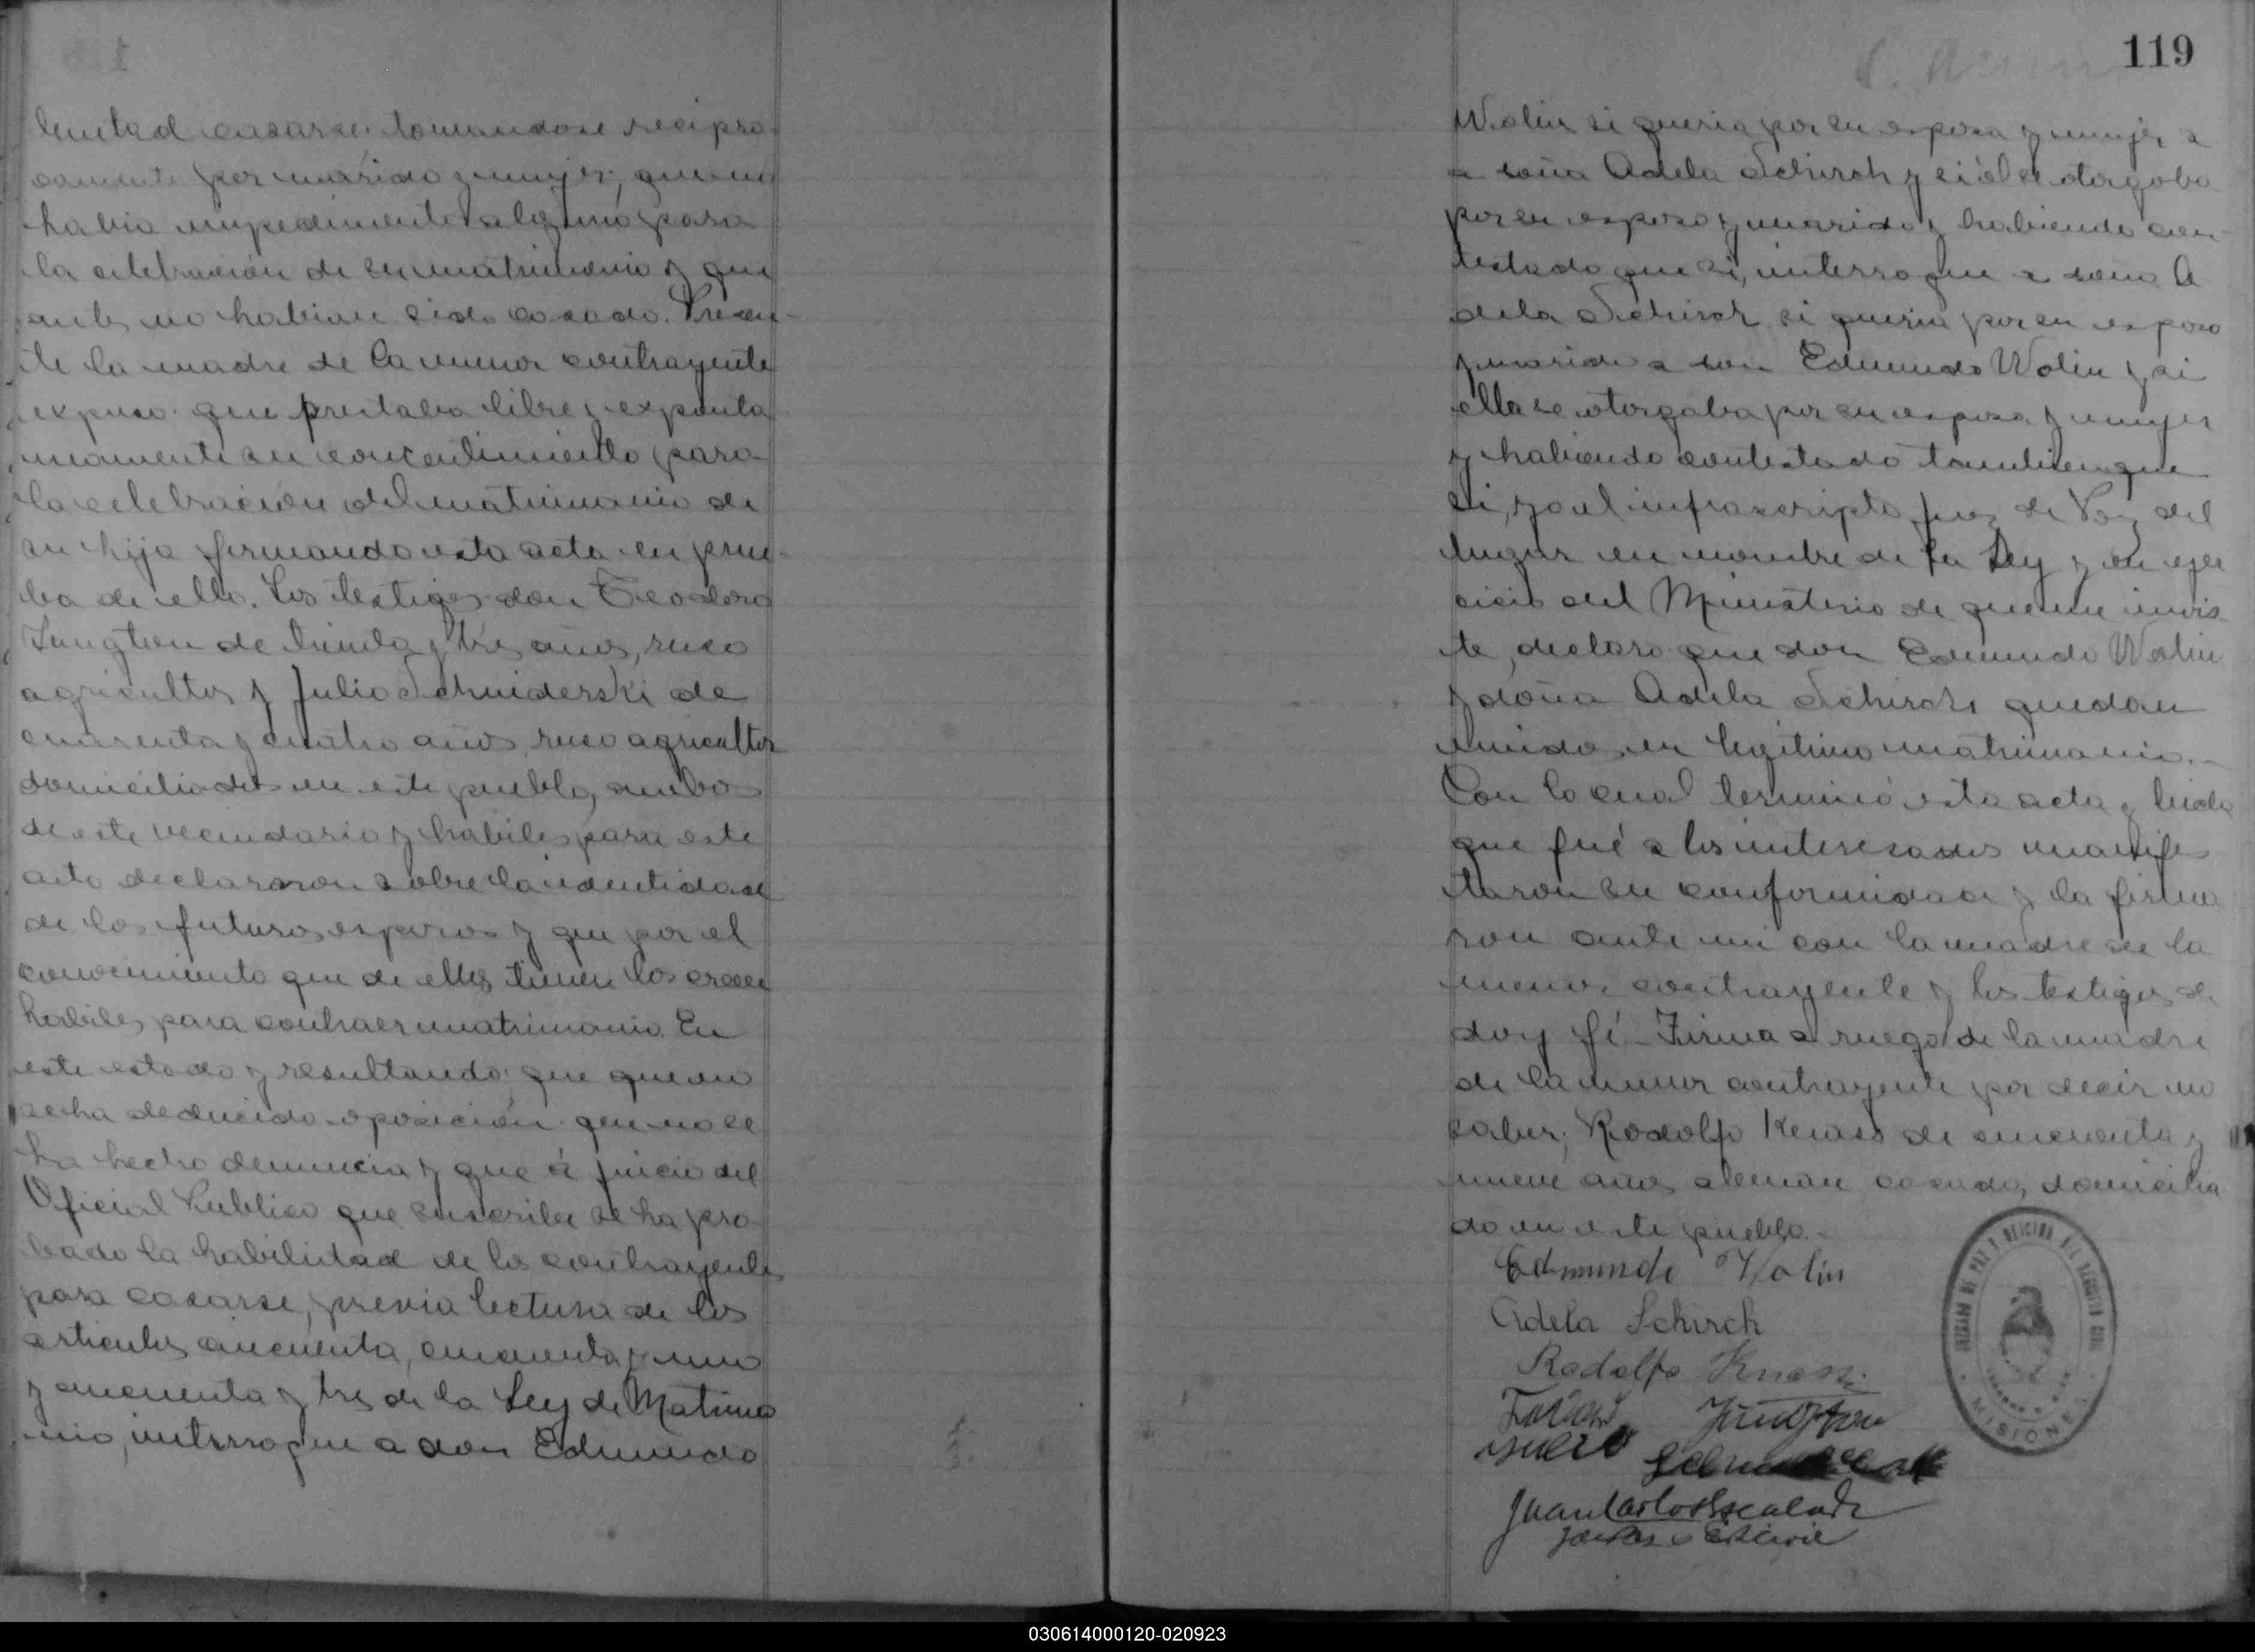 luntad casarse tomandose recipro-
camente por marido y mujer; que no
habia impedimento alguno para
la celebración de su matrimonio y que
antes no habian sido casado. Presen-
te la madre de la menor contrayente
expuso que prestaba libre y exponta
neamente su concentimiento para
la celebración del matrimonio de
su hija firmando esta acta en prue-
ba de ello. Los testigos don Teodoro
Jungton de treinta y tres años, ruso
agricultor y Julio Schmiderski de
cuarenta y cuatro años ruso agricultor
domiciliados en este pueblo, ambos
de este vecindario y habiles para este
acto declararon sobre la identidad
de los futuros esposos y que por el
conocimiento que de ellos tienen los creen
habiles para contraer matrimonio. En
este estado y resultando que que no
se ha deducido oposición que no se
ha hecho denuncia y que á juicio del
Oficial Publico que suscribe se ha pro
bado la habilidad de los contrayentes
para casarse, previa lectura de los
articulos cincuenta, cincuenta y uno
y cincuenta y tres de la Ley de Matrimo
nio, interrogue a don Edmundo
119
Wolin si queria por su esposa y mujer a
a doña Adela Schirch y si él se otorgaba
por su esposo y marido y habiendo con-
testado que si, interrogue a doña A
dela Schirch si queria por su esposo
y marido a don Edmundo Wolin y si
ella se otorgaba por su esposa y mujer
y habiendo contestado tambien que
si, yo el infrascripto Juez de Paz del
lugar en nombre de la Ley y en ejer
cicio del Ministerio de que me invis-
te, declaro que don Edmundo Wolin
y doña Adela Schirch quedan
unidos en legitimo matrimonio.-
Con lo cual terminó esta acta y leida
que fué a los interesados manifes
taron su conformidad y la firma
ron ante mi con la madre de la
menor contrayente y los testigos de
doy fé - Firma a ruego de la madre
de la menor contrayente por decir no
saber; Rodolfo Knass de cincuenta y
nueve años aleman casado, domicilia
do en este pueblo.-
Edmundo Wolin
Adela Schirch
Rodolfo Knass
Jungton
Julio
Juan Carlos Escalada
JUZGADO DE PAZ Y OFICINA DEL REGISTRO CIVIL
MISIONES
030614000120-020923